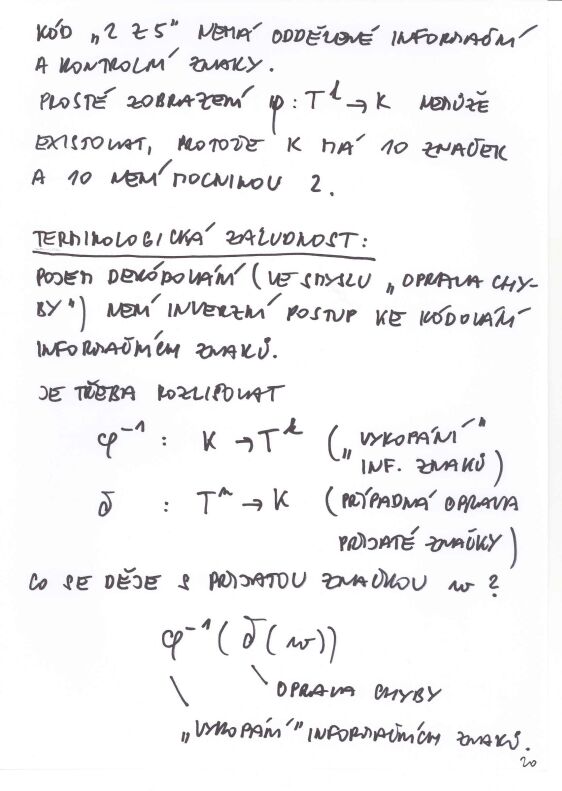 KÓD „2 Z 5" NEMÁ ODDĚLENÉ INFORMAČNÍ
A KONTROLNÍ ZNAKY.
PROSTÉ ZOBRAZENÍ φ : T^k → K NEMŮŽE
EXISTOVAT, PROTOŽE K MÁ 10 ZNAČEK
A 10 NENÍ MOCNINOU 2.
TERMINOLOGICKÁ ZÁLUDNOST:
POJEM DEKÓDOVÁNÍ (VE SMYSLU „OPRAVA CHY-
BY") NENÍ INVERZNÍ POSTUP KE KÓDOVÁNÍ
INFORMAČNÍCH ZNAKŮ.
JE TŘEBA ROZLIŠOVAT
φ^-1 : K → T^k („VYKOPÁNÍ"
INF. ZNAKŮ)
δ : T^n → K (PŘÍPADNÁ OPRAVA
PŘIJATÉ ZNAČKY)
CO SE DĚJE S PŘIJATOU ZNAČKOU w ?
φ^-1 ( δ ( w ))
OPRAVA CHYBY
„VYKOPÁNÍ" INFORMAČNÍCH ZNAKŮ.
20